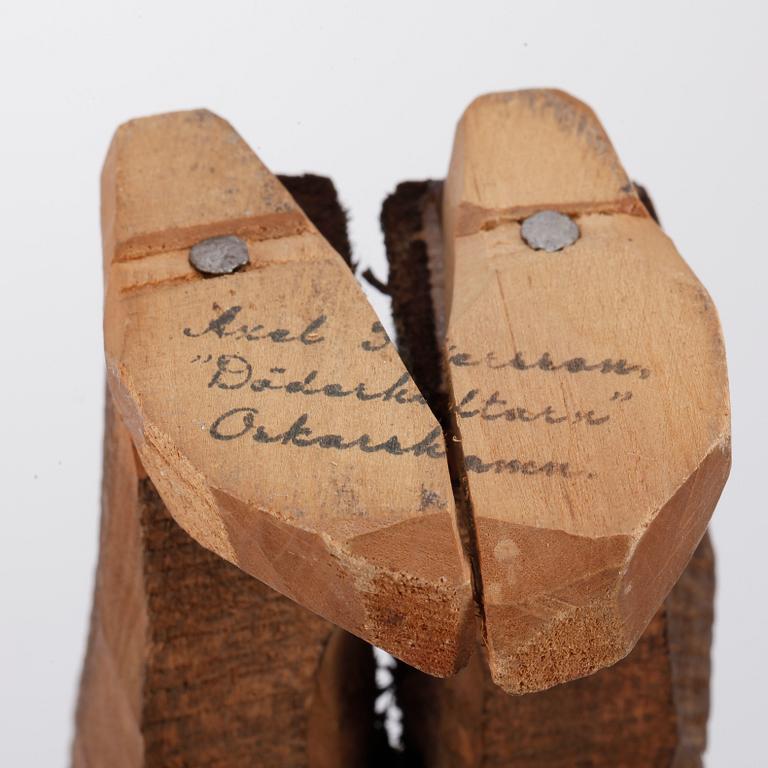 Axel Petersson,
"Döderhultarn"
Oskarshamn.